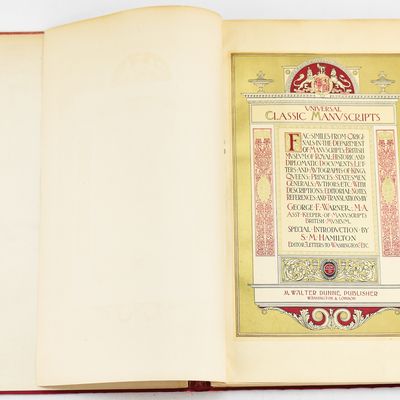 UNIVERSAL
CLASSIC MANVSCRIPTS
FAC-SIMILES FROM ORIGI-
NALS IN THE DEPARTMENT
OF MANVSCRIPTS, BRITISH
MVSEVM OF ROYAL HISTORIC AND
DIPLOMATIC DOCVMENTS, LET-
TERS AND AVTOGRAPHS OF KINGS
QVEENS, PRINCES, STATESMEN,
GENERALS, AVTHORS, ETC. WITH
DESCRIPTIONS, EDITORIAL NOTES
REFERENCES AND TRANSLATIONS BY
GEORGE F. WARNER, M.A.
ASST KEEPER OF MANVSCRIPTS
BRITISH MVSEVM.
SPECIAL INTRODUCTION BY
S. M. HAMILTON
EDITOR "LETTERS TO WASHINGTON," ETC.
M. WALTER DUNNE, PUBLISHER
WASHINGTON & LONDON